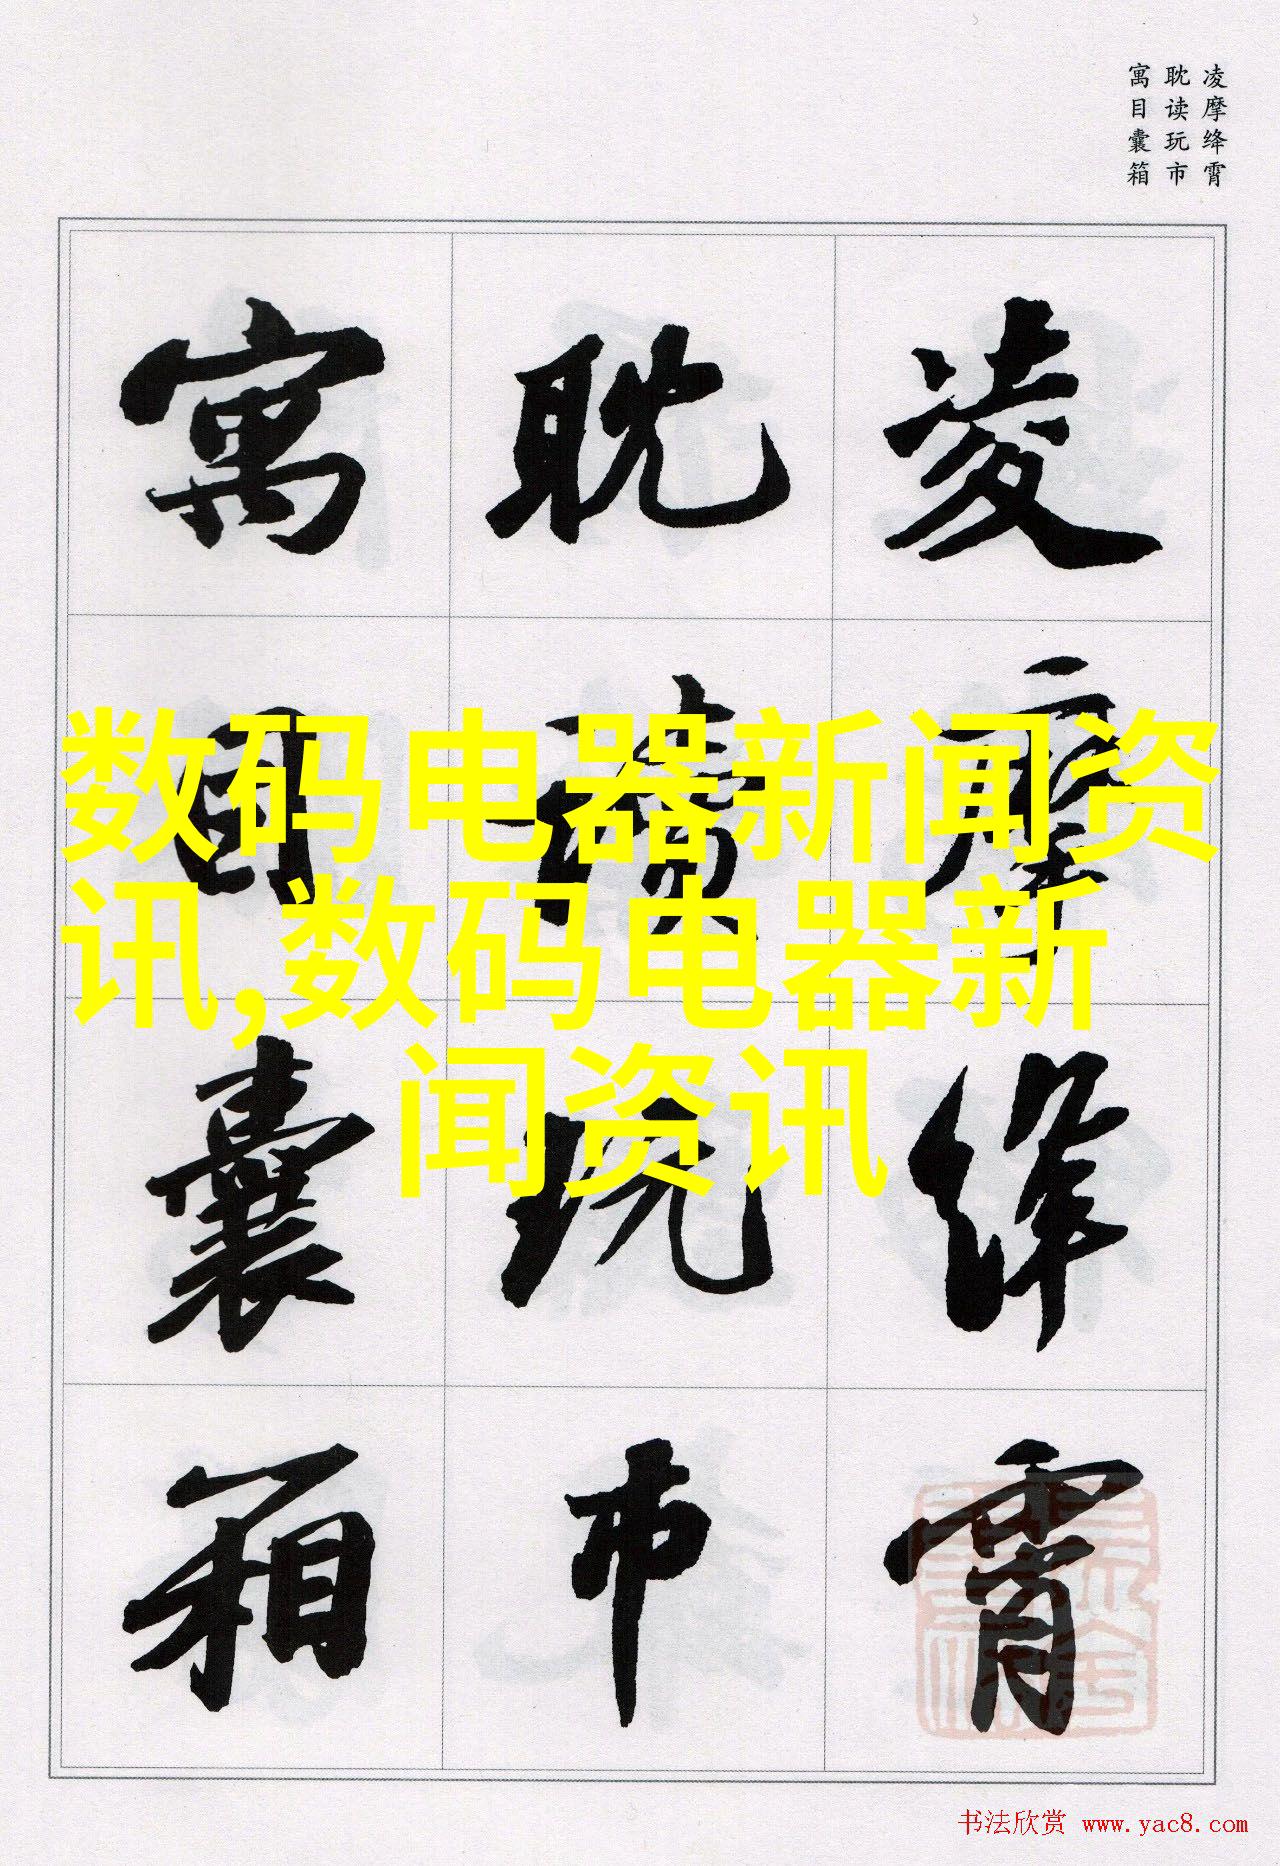 凌摩绛霄
耽读玩市
寓目囊箱
凌摩绛霄
耽读玩市
寓目囊箱
数码电器新闻资
讯,数码电器新
闻资讯
书法欣赏 www.yac8.com